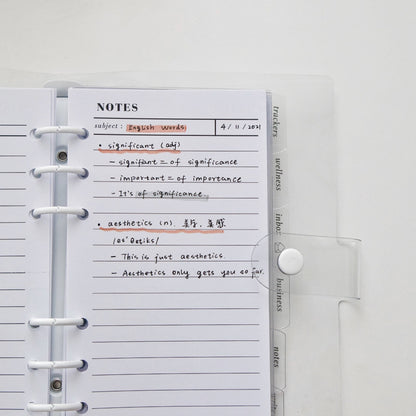 NOTES
subject: English Words 4/11/2021
• significant (adj)
- signifiant = of significance
- important = of importance
- It's of significance.
• aesthetics (n).
- This is just aesthetics.
- Aesthetics only gets you so far.
trackers
wellness
inbox
business
notes